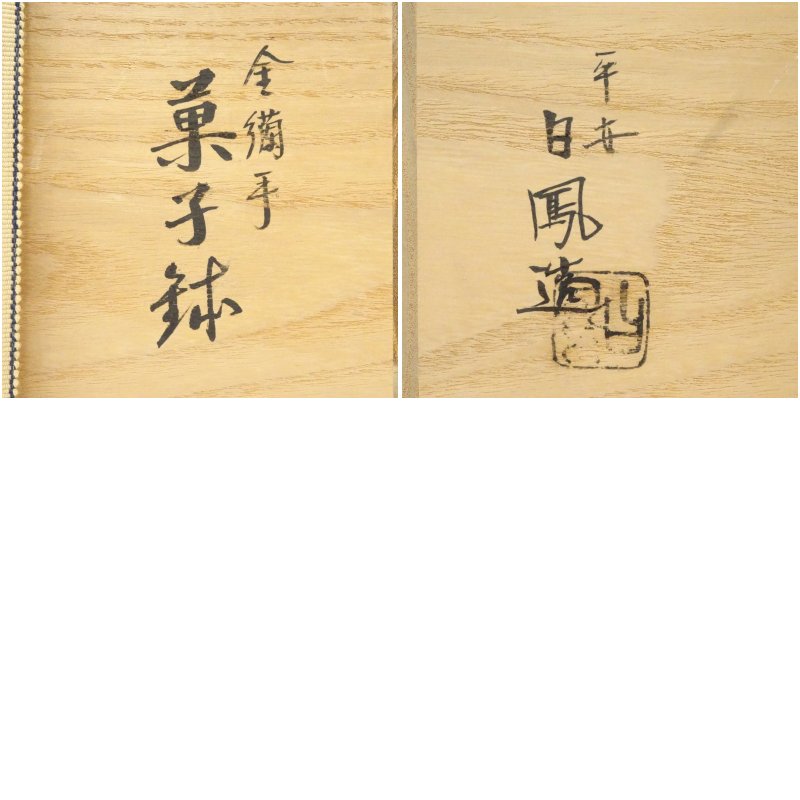 金襴手
菓子鉢
平安
日鳳造